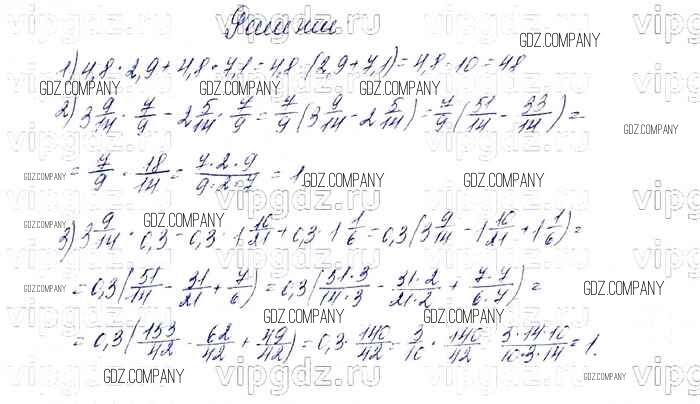 Решение:
1) 4,8 · 2,9 + 4,8 · 7,1 = 4,8 · (2,9 + 7,1) = 4,8 · 10 = 48
2) 3 9/14 · 7/9 - 2 5/14 · 7/9 = 7/9 (3 9/14 - 2 5/14) = 7/9 (51/14 - 33/14) =
= 7/9 · 18/14 = 7·2·9/9·2·7 = 1.
3) 3 9/14 · 0,3 - 0,3 · 1 10/21 + 0,3 · 1 1/6 = 0,3 (3 9/14 - 1 10/21 + 1 1/6) =
= 0,3 (51/14 - 31/21 + 7/6) = 0,3 (51·3/14·3 - 31·2/21·2 + 7·7/6·7) =
= 0,3 (153/42 - 62/42 + 49/42) = 0,3 · 140/42 = 3/10 · 140/42 = 3·14·10/10·3·14 = 1.
GDZ.COMPANY
vipgdz.ru